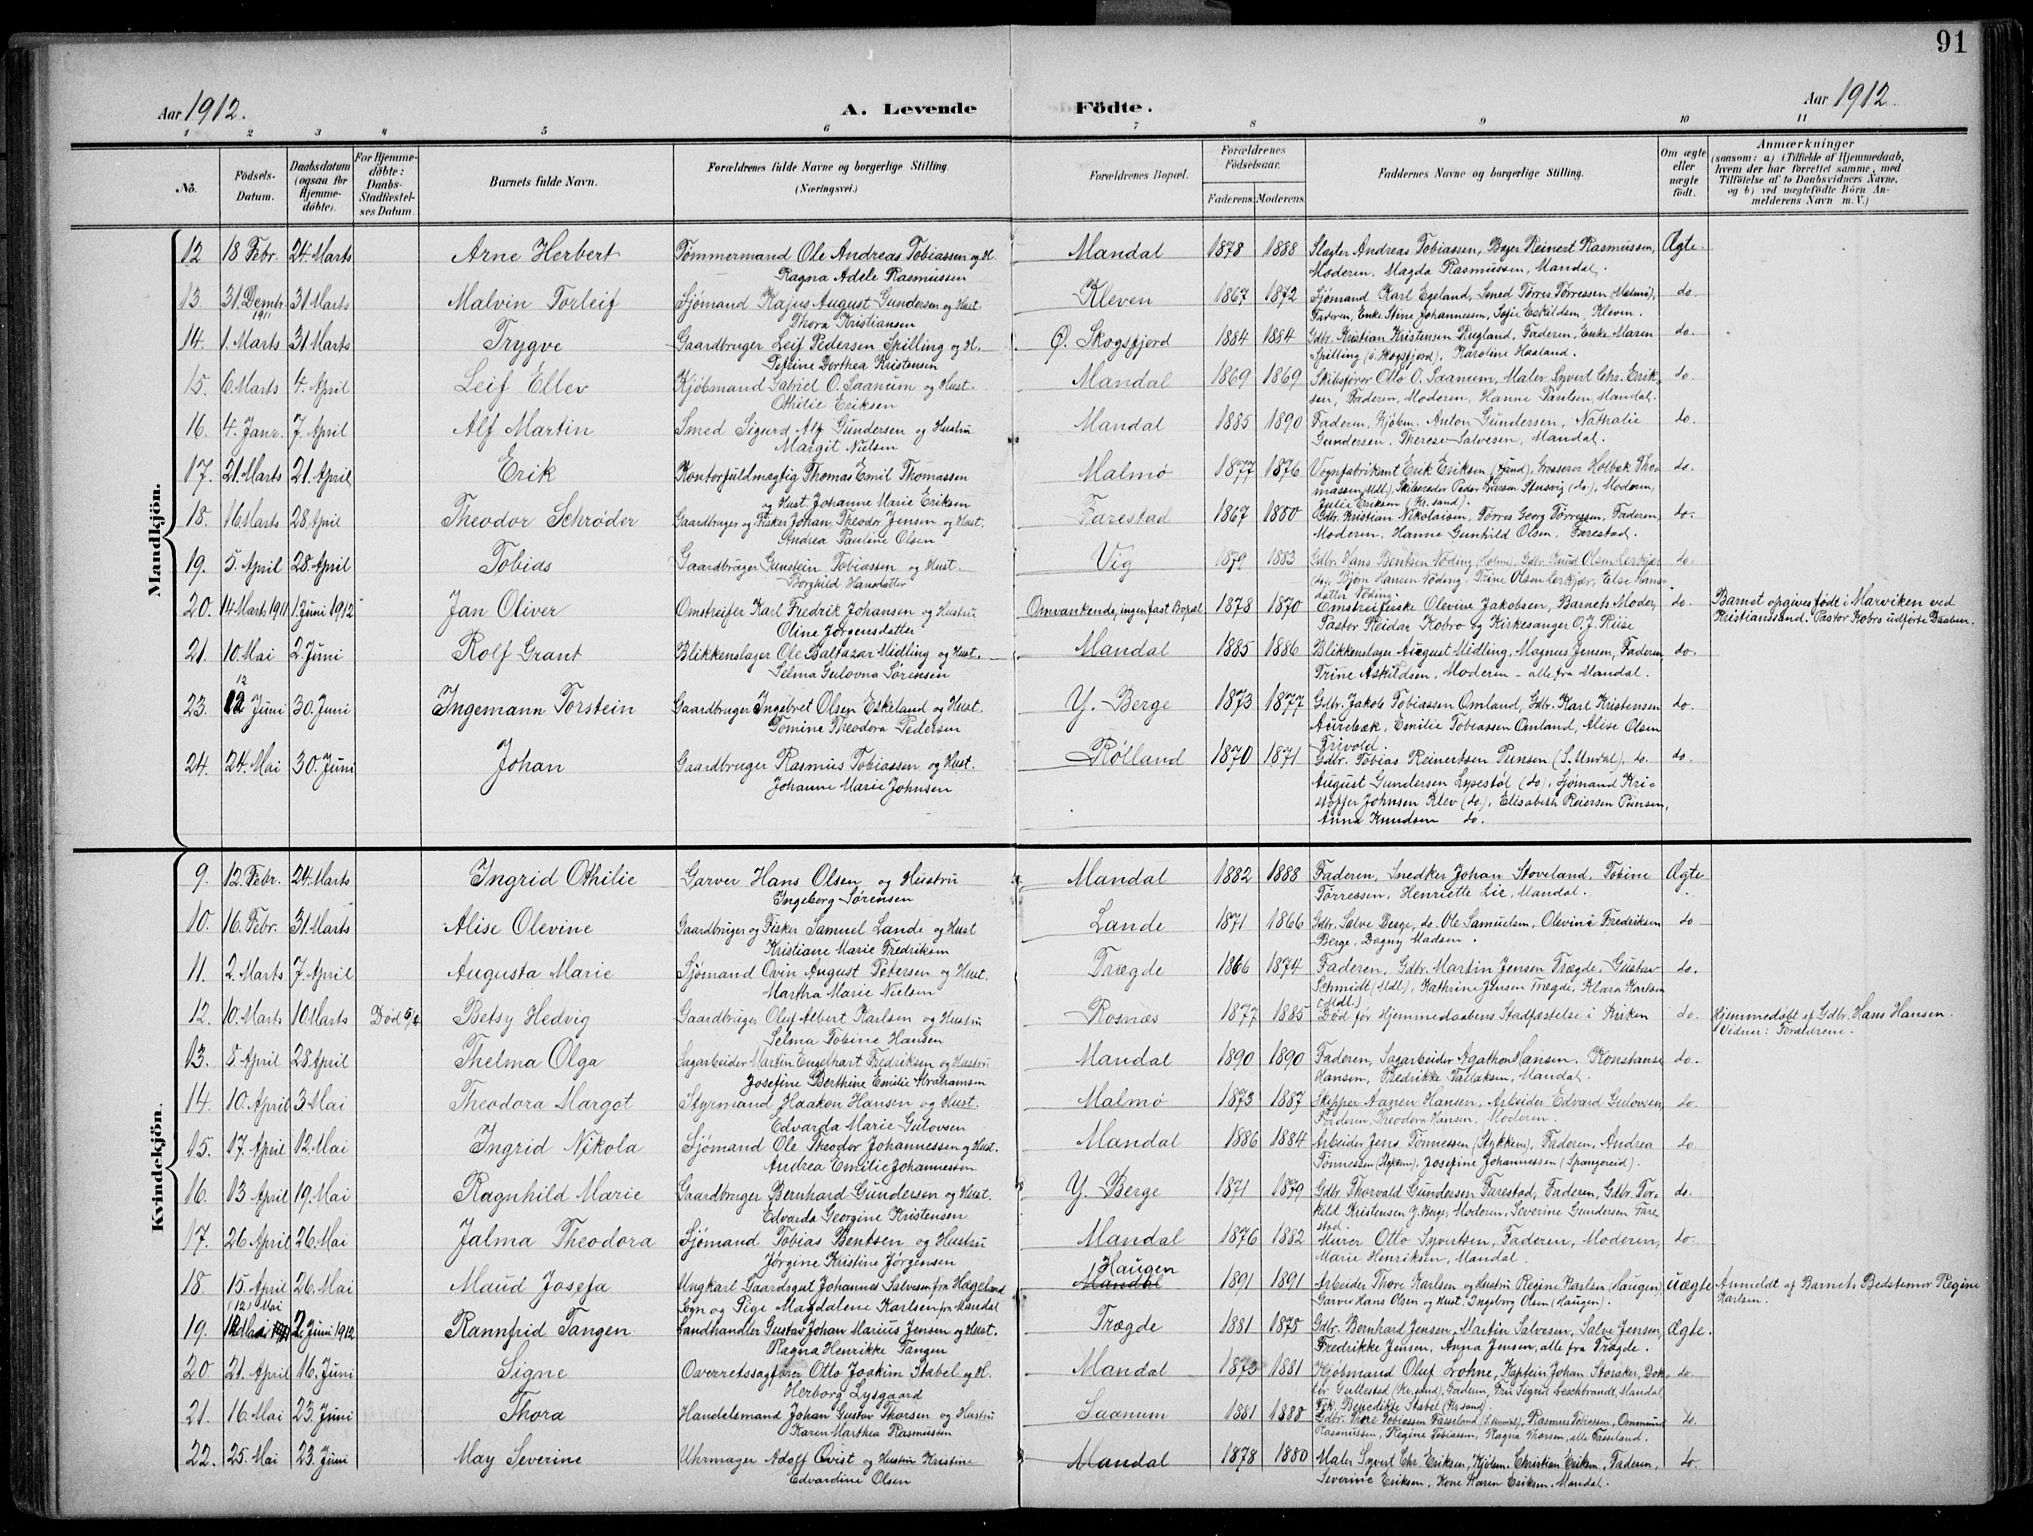 91
Aar 1912. A. Levende Fødte. Aar 1912.
1 2 3 4 5 6 7 8 9 10 11
No. Födsels-Datum. Daabsdatum (ogsaa for Hjemme-döbte). For Hjemme-döbte: Daabs-Stadfæstel-ses Datum. Barnets fulde Navn. Forældrenes fulde Navne og borgerlige Stilling. (Næringsvei.) Forældrenes Bopæl. Forældrenes Födselsaar. Faderens. Moderens. Faddernes Navne og borgerlige Stilling. Om ægte eller uægte födt. Anmærkninger (saasom: a) i Tilfælde af Hjemmedaab, hvem der har forrettet samme, med Tilföielse af to Daabsvidners Navne, og b) ved uægtefödte Börn An-melderens Navn m. V.)
Mandkjön.
12 18 Febr. 24. Marts Arne Herbert Tømmermand Ole Andreas Tobiassen og H. Mandal 1878 1888 Slagter Andreas Tobiassen, Bager Reinert Rasmussen, Ægte
Ragna Adele Rasmussen Moderen, Magda Rasmussen, Mandal.
13. 31 Dembr. 31 Marts Malvin Torleif Sjømand Kajus August Gundersen og Hust. Kleven 1867 1872 Sjømand Karl Egeland, Smed Tørres Tørressen (Malmø), do.
1911 Thora Kristiansen Faderen, Enke Stine Johannessen, Sofie Eskildsen, Kleven.
14. 1. Marts 31 Marts Trygve Gaardbruger Leif Pedersen Spilling og H. Ø. Skogsfjord 1884 1884 Gdbr. Kristian Kristensen Rugland, Faderen, Enke Maren do.
Petrine Dorthea Kristensen Spilling (ö. Skogsfjord), Karoline Haaland.
15. 6. Marts 4. April Leif Ellev Kjøbmand Gabriel O. Saanum og Hust. Mandal 1869 1869 Skibsfører Otto O. Saanum, Maler Syvert Chr. Erik- do.
Othilie Eriksen sen, Faderen, Moderen, Hanne Paulsen, Mandal.
16. 4. Janr. 7. April Alf Martin Smed Sigurd Alf Gundersen og Hustru Mandal 1885 1890 Faderen, Kjøbm. Anton Gundersen, Nathalie do.
Margit Nielsen Gundersen, Therese Salvesen, Mandal.
17. 21 Marts 21. April Erik Kontorfuldmægtig Thomas Emil Thomassen Malmø 1877 1876 Vognfabrikant Erik Eriksen, Grosserer Holbæk Tho- do.
og Hust. Johanne Marie Eriksen massen (Mdl.), Skibsreder Peder Iversen Stusvig (do), Moderen,
Julie Eriksen (Kr.sand).
18. 16 Marts 28. April Theodor Schrøder Gaardbruger og Fisker Johan Theodor Jensen og Hust. Farestad 1867 1880 Gdbr. Kristian Nikolaisen, Tørres Georg Tørressen, Faderen, do.
Andrea Pauline Olsen Moderen, Hanne Gunhild Olsen, Farestad.
19. 5. April 28. April Tobias Gaardbruger Gunstein Tobiassen og Hust. Vig 1879 1883 Gdbr. Hans Bentsen Nöding (Holme), Gdbr. Knud Olsen Lerkjær do.
Borghild Hansdatter (do), Bjørn Hansen Nöding, Trine Olsen Lerkjær, Else Hans-
datter Nöding.
20. 14 Marts 1911 1. Juni 1912 Jan Oliver Omstreifer Karl Fredrik Johansen og Hustru Omvankende, ingen fast Bopæl 1878 1870 Omstreiferske Olevine Jakobsen, Barnets Moder, do. Barnet opgives født i Marviken ved
Oline Jørgensdatter Pastor Reidar Kobro og Kirkesanger O. J. Riise Kristianssand. Pastor Kobro udførte Daaben.
21. 10. Mai 2. Juni Rolf Grant Blikkenslager Ole Baltazar Midling og Hust. Mandal 1885 1886 Blikkenslager August Midling, Magnus Jensen, Faderen, do.
Selma Gulovna Sørensen Trine Askildsen, Moderen - alle fra Mandal.
23. 12 Juni 30. Juni Ingemann Torstein Gaardbruger Ingebret Olsen Eskeland og Hust. Y. Berge 1873 1877 Gdbr. Jakob Tobiassen Omland, Gdbr. Karl Kristensen do.
Tomine Theodora Pedersen Aurebæk, Emilie Tobiassen Omland, Alise Olsen
Frivold.
24. 24. Mai 30. Juni Johan Gaardbruger Rasmus Tobiassen og Hust. Rølland 1870 1871 Gdbr. Tobias Reinertsen Sunsen (S. Undal), do. do.
Johanne Marie Johnsen August Gundersen Lyestöl (do), Sjømand Kri-
stoffer Johnsen Klev (do), Elisabeth Reiersen,
Anna Knudsen do.
Kvindekjön.
9. 12. Febr. 24. Marts Ingrid Othilie Garver Hans Olsen og Hustru Mandal 1882 1888 Faderen, Snedker Johan Stoveland, Tobine Ægte
Ingeborg Sørensen Tørressen, Henriette Lie, Mandal.
10. 16. Febr. 31 Marts Alise Olevine Gaardbruger og Fisker Samuel Lande og Hust Lande 1871 1866 Gdbr. Salve Berge, do. Ole Samuelsen, Olevine Fredriksen do
Kristiane Marie Fredriksen Berge, Dagny Madsen.
11. 2. Marts 7. April Augusta Marie Sjømand Ovin August Petersen og Hust. Trægde 1866 1874 Faderen, Gdbr. Martin Jensen Trægde, Gustav do.
Martha Marie Nielsen Schmidt (Mdl.), Kathrine Jensen Trægde, Klara Karlsen
(Mdl.)
12. 10. Marts 10 Marts Död 5/4 Betsy Hedvig Gaardbruger Oluf Albert Karlsen og Hustru Rosnæs 1877 1885 Död før Hjemmedaabens Stadfæstelse i Kirken do. Hjemmedøbt af Gdbr. Hans Hansen.
Selma Tobine Hansen Vidner: Forældrene.
13. 8 April 28. April Thelma Olga Sagarbeider Martin Engelhart Fredriksen og Hustru Mandal 1890 1890 Faderen, Sagarbeider Agathon Hansen, Konstanse do.
Josefine Berthine Emilie Abrahamsen Hansen, Fredrikke Tallaksen, Mandal.
14. 10. April 3. Mai Theodora Margot Styrmand Haakon Hansen og Hust. Malmø 1873 1887 Skipper Aanen Hansen, Arbeider Edvard Gulowsen, do.
Edvarda Marie Gulovsen Faderen, Theodora Hansen, Moderen.
15. 17. April 12. Mai Ingrid Nikola Sjømand Ole Theodor Johannessen og Hust. Mandal 1886 1884 Arbeider Jens Tønnessen (Stykken), Faderen, Andrea do
Andrea Emilie Johannessen Tønnessen (Stykken), Josefine Johannessen (Spangereid).
16. 13 April 19. Mai Ragnhild Marie Gaardbruger Bernhard Gundersen og Hust. Y. Berge 1871 1879 Gdbr. Thorvald Gundersen Farestad, Faderen, Gdbr. Tor- do.
Edvarda Georgine Kristensen kild Kristensen Y. Berge, Moderen, Severine Gundersen Fare-
stad.
17. 26 April 26. Mai Jalma Theodora Sjømand Tobias Bentsen og Hustru Mandal 1876 1882 Murer Otto Syvertsen, Faderen, Moderen, do.
Jørgine Kristine Jørgensen Marie Henriksen, Mandal.
Haugen
18. 15. April 26. Mai Maud Josefa Ungkarl Gaardsgut Johannes Salvesen fra Hægeland Mandal 1891 1891 Arbeider Thore Karlsen og Hustru Regine Karlsen, (Haugen) Uægte Anmeldt af Barnets Bedstemor Regine
Syn og Pige Magdalene Karlsen fra Mandal Garver Hans Olsen og Hust. Ingeborg Olsen (Haugen). Karlsen.
(12) Mai
19. 2. Juni 1912 Rannfrid Tangen Landhandler Gustav Johan Marius Jensen og Hust. Trægde 1881 1878 Gdbr. Bernhard Jensen, Martin Salvesen, Salve Jensen, Ægte.
Ragna Henrikke Tangen Fredrikke Jensen, Anna Jensen, alle fra Trægde.
20 21. April 16. Juni Signe Overretssagfører Otto Joakim Stabel og H. Mandal 1873 1881 Kjøbmand Oluf Lohne, Kaptein Johan Storaker, Dok- do.
Herborg Lysgaard tor Gullestad (Kr.sand), Faderen, Fru Sigrid Leschbrandt, Mandal
Frk. Benedikte Stabel (Kr.sand).
21. 16 Mai 23. Juni Thora Handelsmand Johan Gustav Thorsen og Hustru Saanum 1881 1888 Gdbr. Thore Tobiassen Fasseland, Rasmus Tobiassen, Ommund do.
Karen Marthea Rasmussen Rasmussen, Regine Tobiassen, Ragna Thorsen, alle Fasseland.
22. 25. Mai 23. Juni May Severine Uhrmager Adolf Qvist og Hustru Kristine Mandal 1878 1880 Maler Syvert Chr. Eriksen, Kjøbm. Christian Eriksen, Faderen, do.
Edvardine Olsen Severine Eriksen, Kone Karen Eriksen, Mandal.